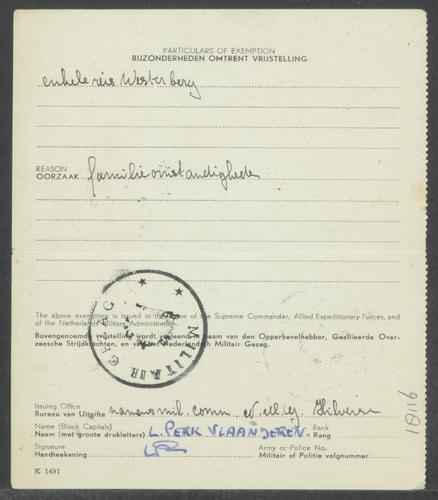 PARTICULARS OF EXEMPTION
BIJZONDERHEDEN OMTRENT VRIJSTELLING
enkele reis Westerberg
REASON
OORZAAK familieomstandigheden
MILITAIR GEZAG
The above exemption is issued in the name of the Supreme Commander, Allied Expeditionary Forces, and
of the Netherlands Military Administration.
Bovengenoemde vrijstelling wordt verleend in naam van den Opperbevelhebber, Geallieerde Over-
zeesche Strijdkrachten, en van het Nederlandsch Militair Gezag.
Issuing Office
Bureau van Uitgifte namens mil. comm.
Name (Block Capitals) Rank
Naam (met groote drukletters) L PERK VLAANDEREN Rang
Signature Army or Police No.
Handteekening Militair of Politie volgnummer
K 1491